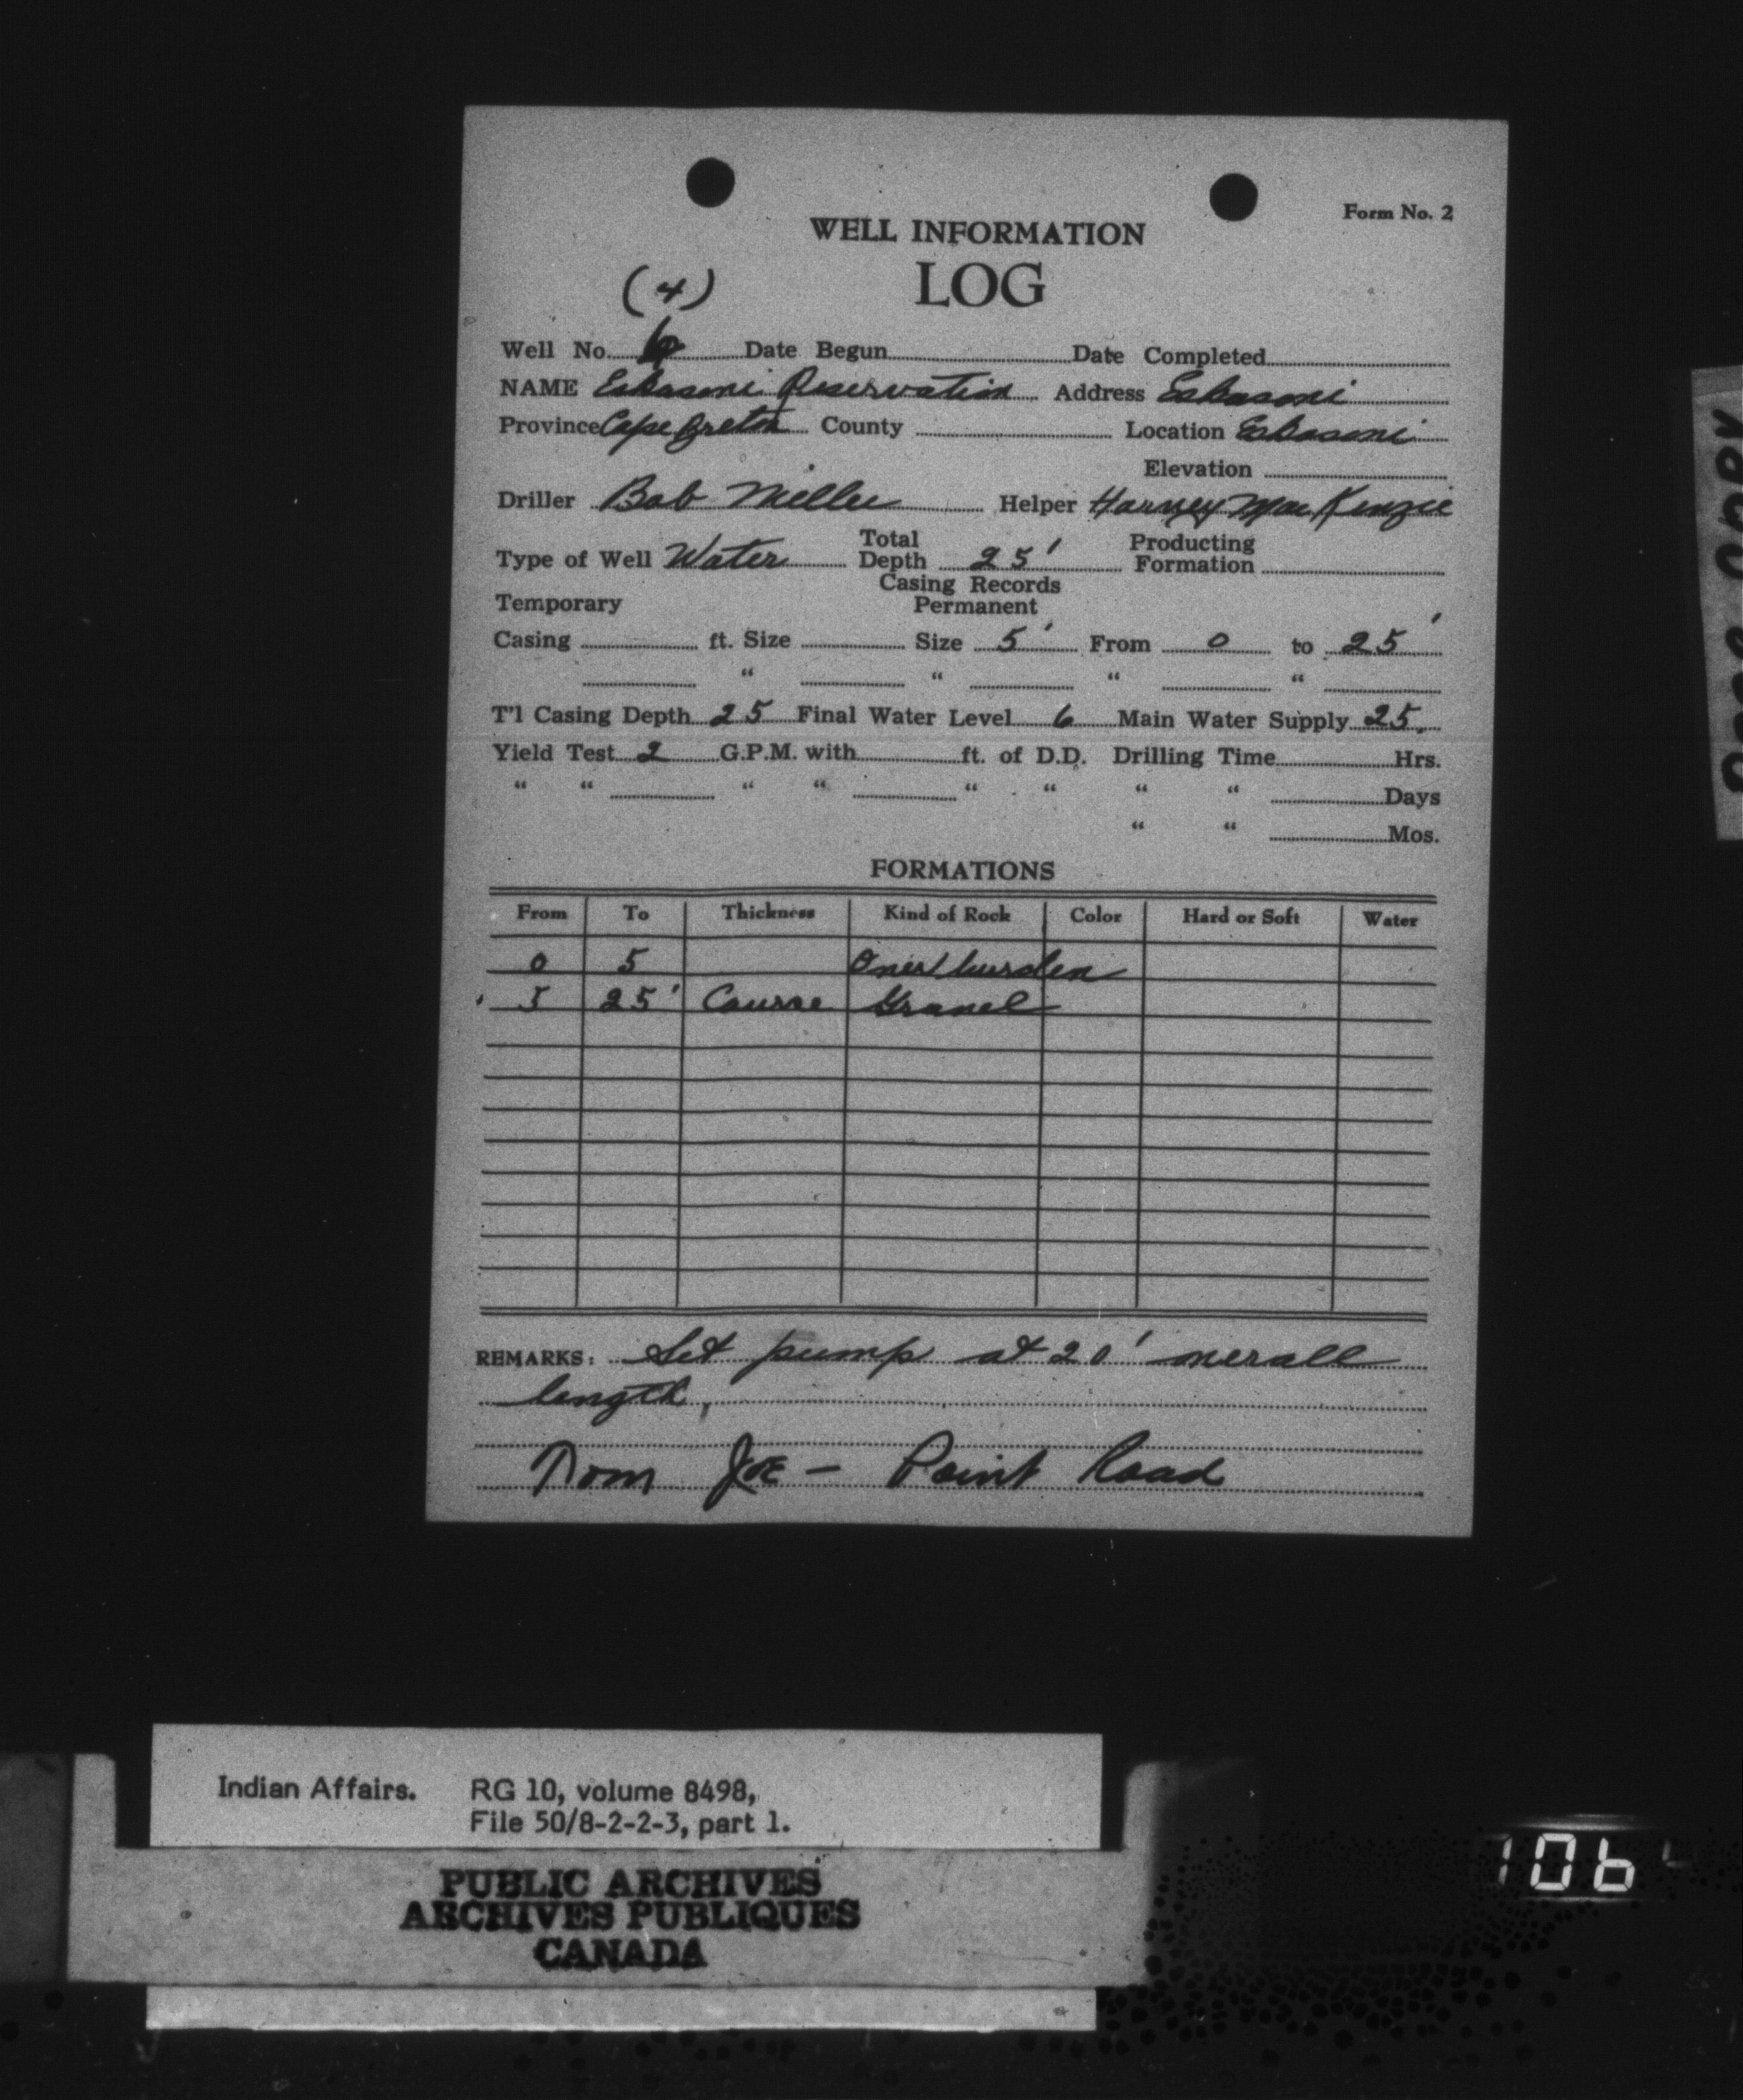 Form No. 2
WELL INFORMATION
LOG
(4)
Well No. Date Begun Date Completed
NAME Eskasoni Reservation Address Eskasoni
Province Cape Breton County Location Eskasoni
Elevation
Driller Bob Miller Helper Harvey MacKenzie
Type of Well Water Total Depth 25' Producting Formation
Casing Records
Temporary Permanent
Casing ft. Size Size 5' From 0 to 25'
" " " "
T'l Casing Depth 25 Final Water Level 6 Main Water Supply 25.
Yield Test 2 G.P.M. with ft. of D.D. Drilling Time Hrs.
" " " " " " " " Days
" " Mos.
FORMATIONS
From To Thickness Kind of Rock Color Hard or Soft Water
0 5 Over burden
5 25' Course Gravel
REMARKS: Set pump at 20' overall
length,
Tom Joe - Point Road
Indian Affairs. RG 10, volume 8498,
File 50/8-2-2-3, part 1.
PUBLIC ARCHIVES
ARCHIVES PUBLIQUES
CANADA
106
COPY